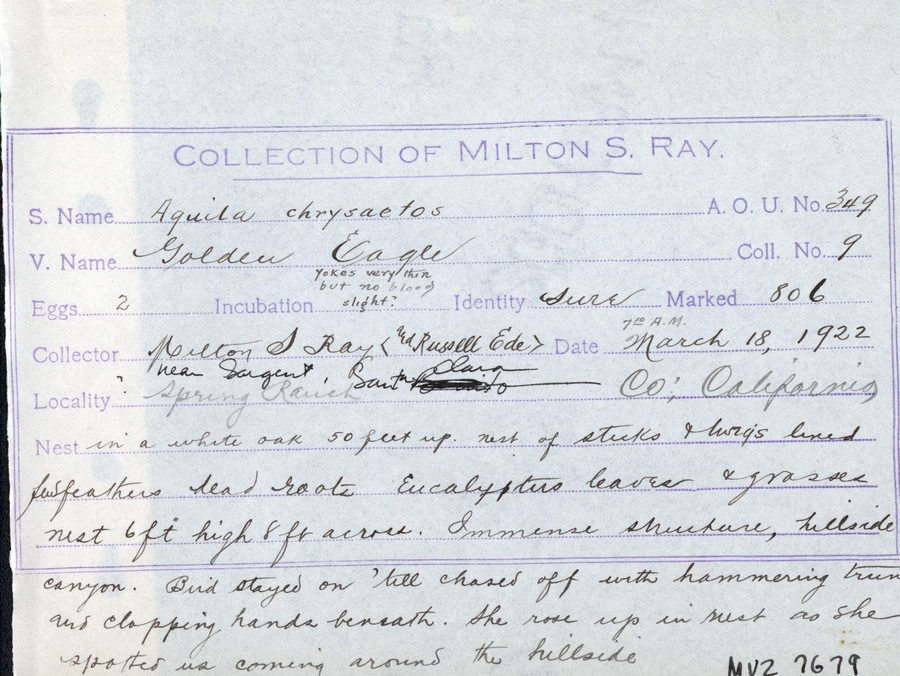 COLLECTION OF MILTON S. RAY.
S. Name Aquila chrysaetos A. O. U. No. 349
V. Name Golden Eagle Coll. No. 9
Yokes very thin
but no blood
Eggs 2 Incubation slight? Identity sure Marked 806
7:00 A.M.
Collector Milton S Ray <Ed Russell Ede> Date March 18, 1922
near Sargent, Santa Clara
Locality ? Spring Ranch Co; California
Nest in a white oak 50 feet up. nest of sticks & twigs lined
few feathers dead roots Eucalyptus leaves & grasses
nest 6 ft high 8 ft across. Immense structure, hillside
canyon. Bird stayed on 'till chased off with hammering trun
and clapping hands beneath. She rose up in nest as she
spotted us coming around the hillside
MVZ 7679